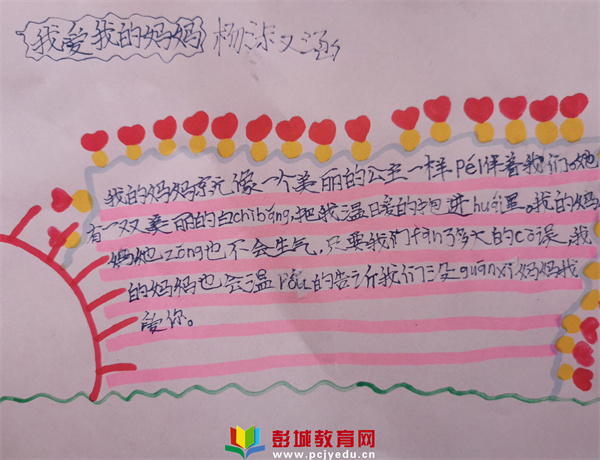 我爱我的妈妈 杨 涵
我的妈妈 像一个美丽的公主一样péi伴着我们。她
有一双美丽的白chìbǎng,把我温暖的抱进huái里。我的妈
妈她zǒng也不会生气,只要我们fàn了多大的cò误,我
的妈妈也会温róu的告诉我们没guānxi妈妈我
爱你。
彭城教育网
www.pcjyedu.cn